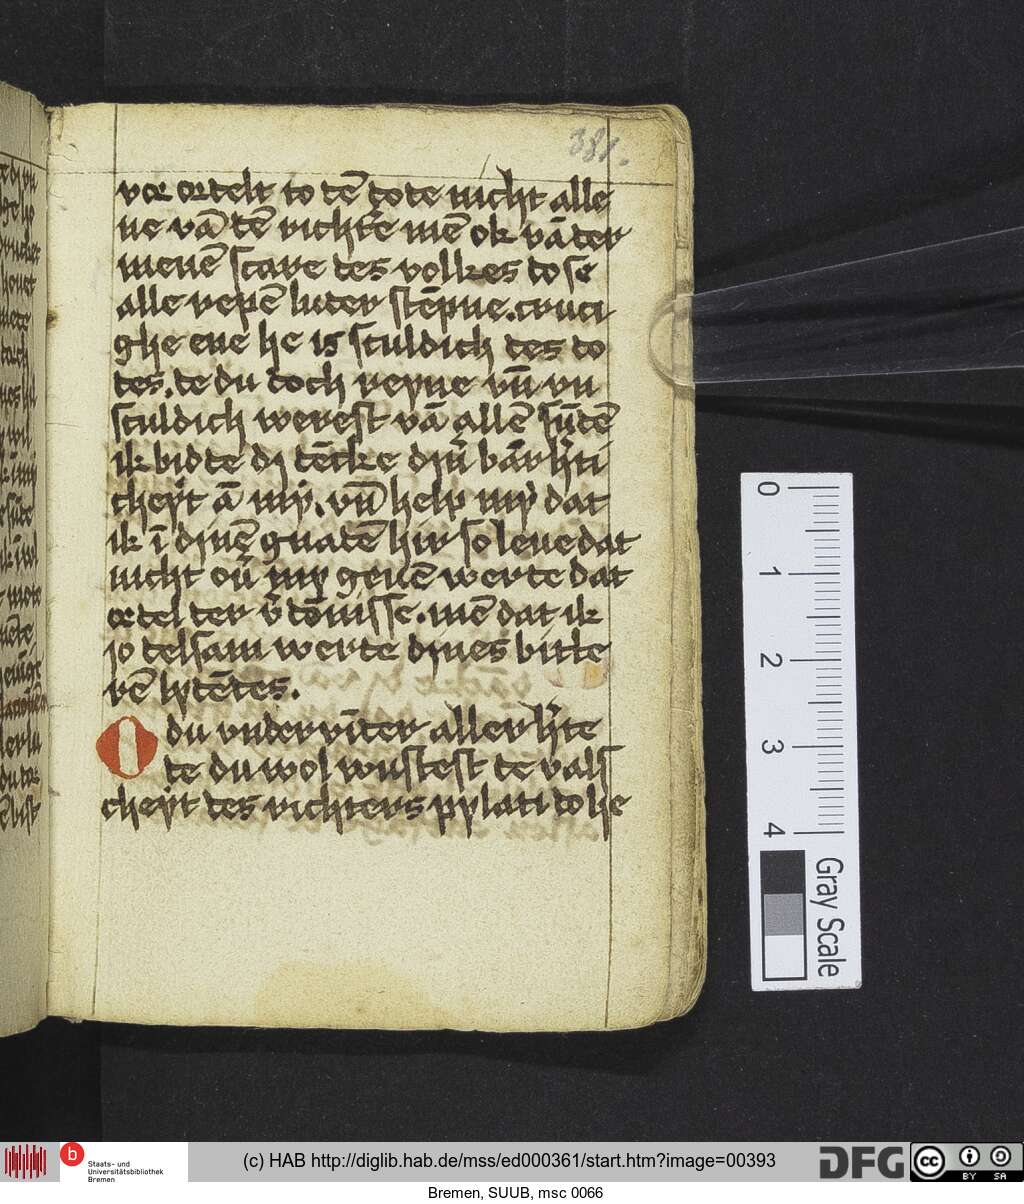 381.
vor ortelt to dē dode nicht alle
ne vā dē richtē mē ok vā der
menē scare des volkes do se
alle repē luder stēpne. cruci
ghe ene he is sculdich des do
des. de du doch reyne vn̄ vn
sculdich werest vā allē sūdē
ik bidde di dēcke din̄ bārh̄ti
cheyt ā my. vn̄ help my dat
ik ī dinē gnadē hir so leue dat
nicht ou̅ my geuē werde dat
ordel der v̄dōnisse. mē dat ik
jo delsam werde dines bitte
rē lydēdes.
O du vnderwīder aller h̄te
de du wol wustest de vals
cheyt des richters pylati do he
0
1
2
3
4
Gray Scale
b
Staats- und
Universitätsbibliothek
Bremen
(c) HAB http://diglib.hab.de/mss/ed000361/start.htm?image=00393
DFG
cc
BY SA
Bremen, SUUB, msc 0066